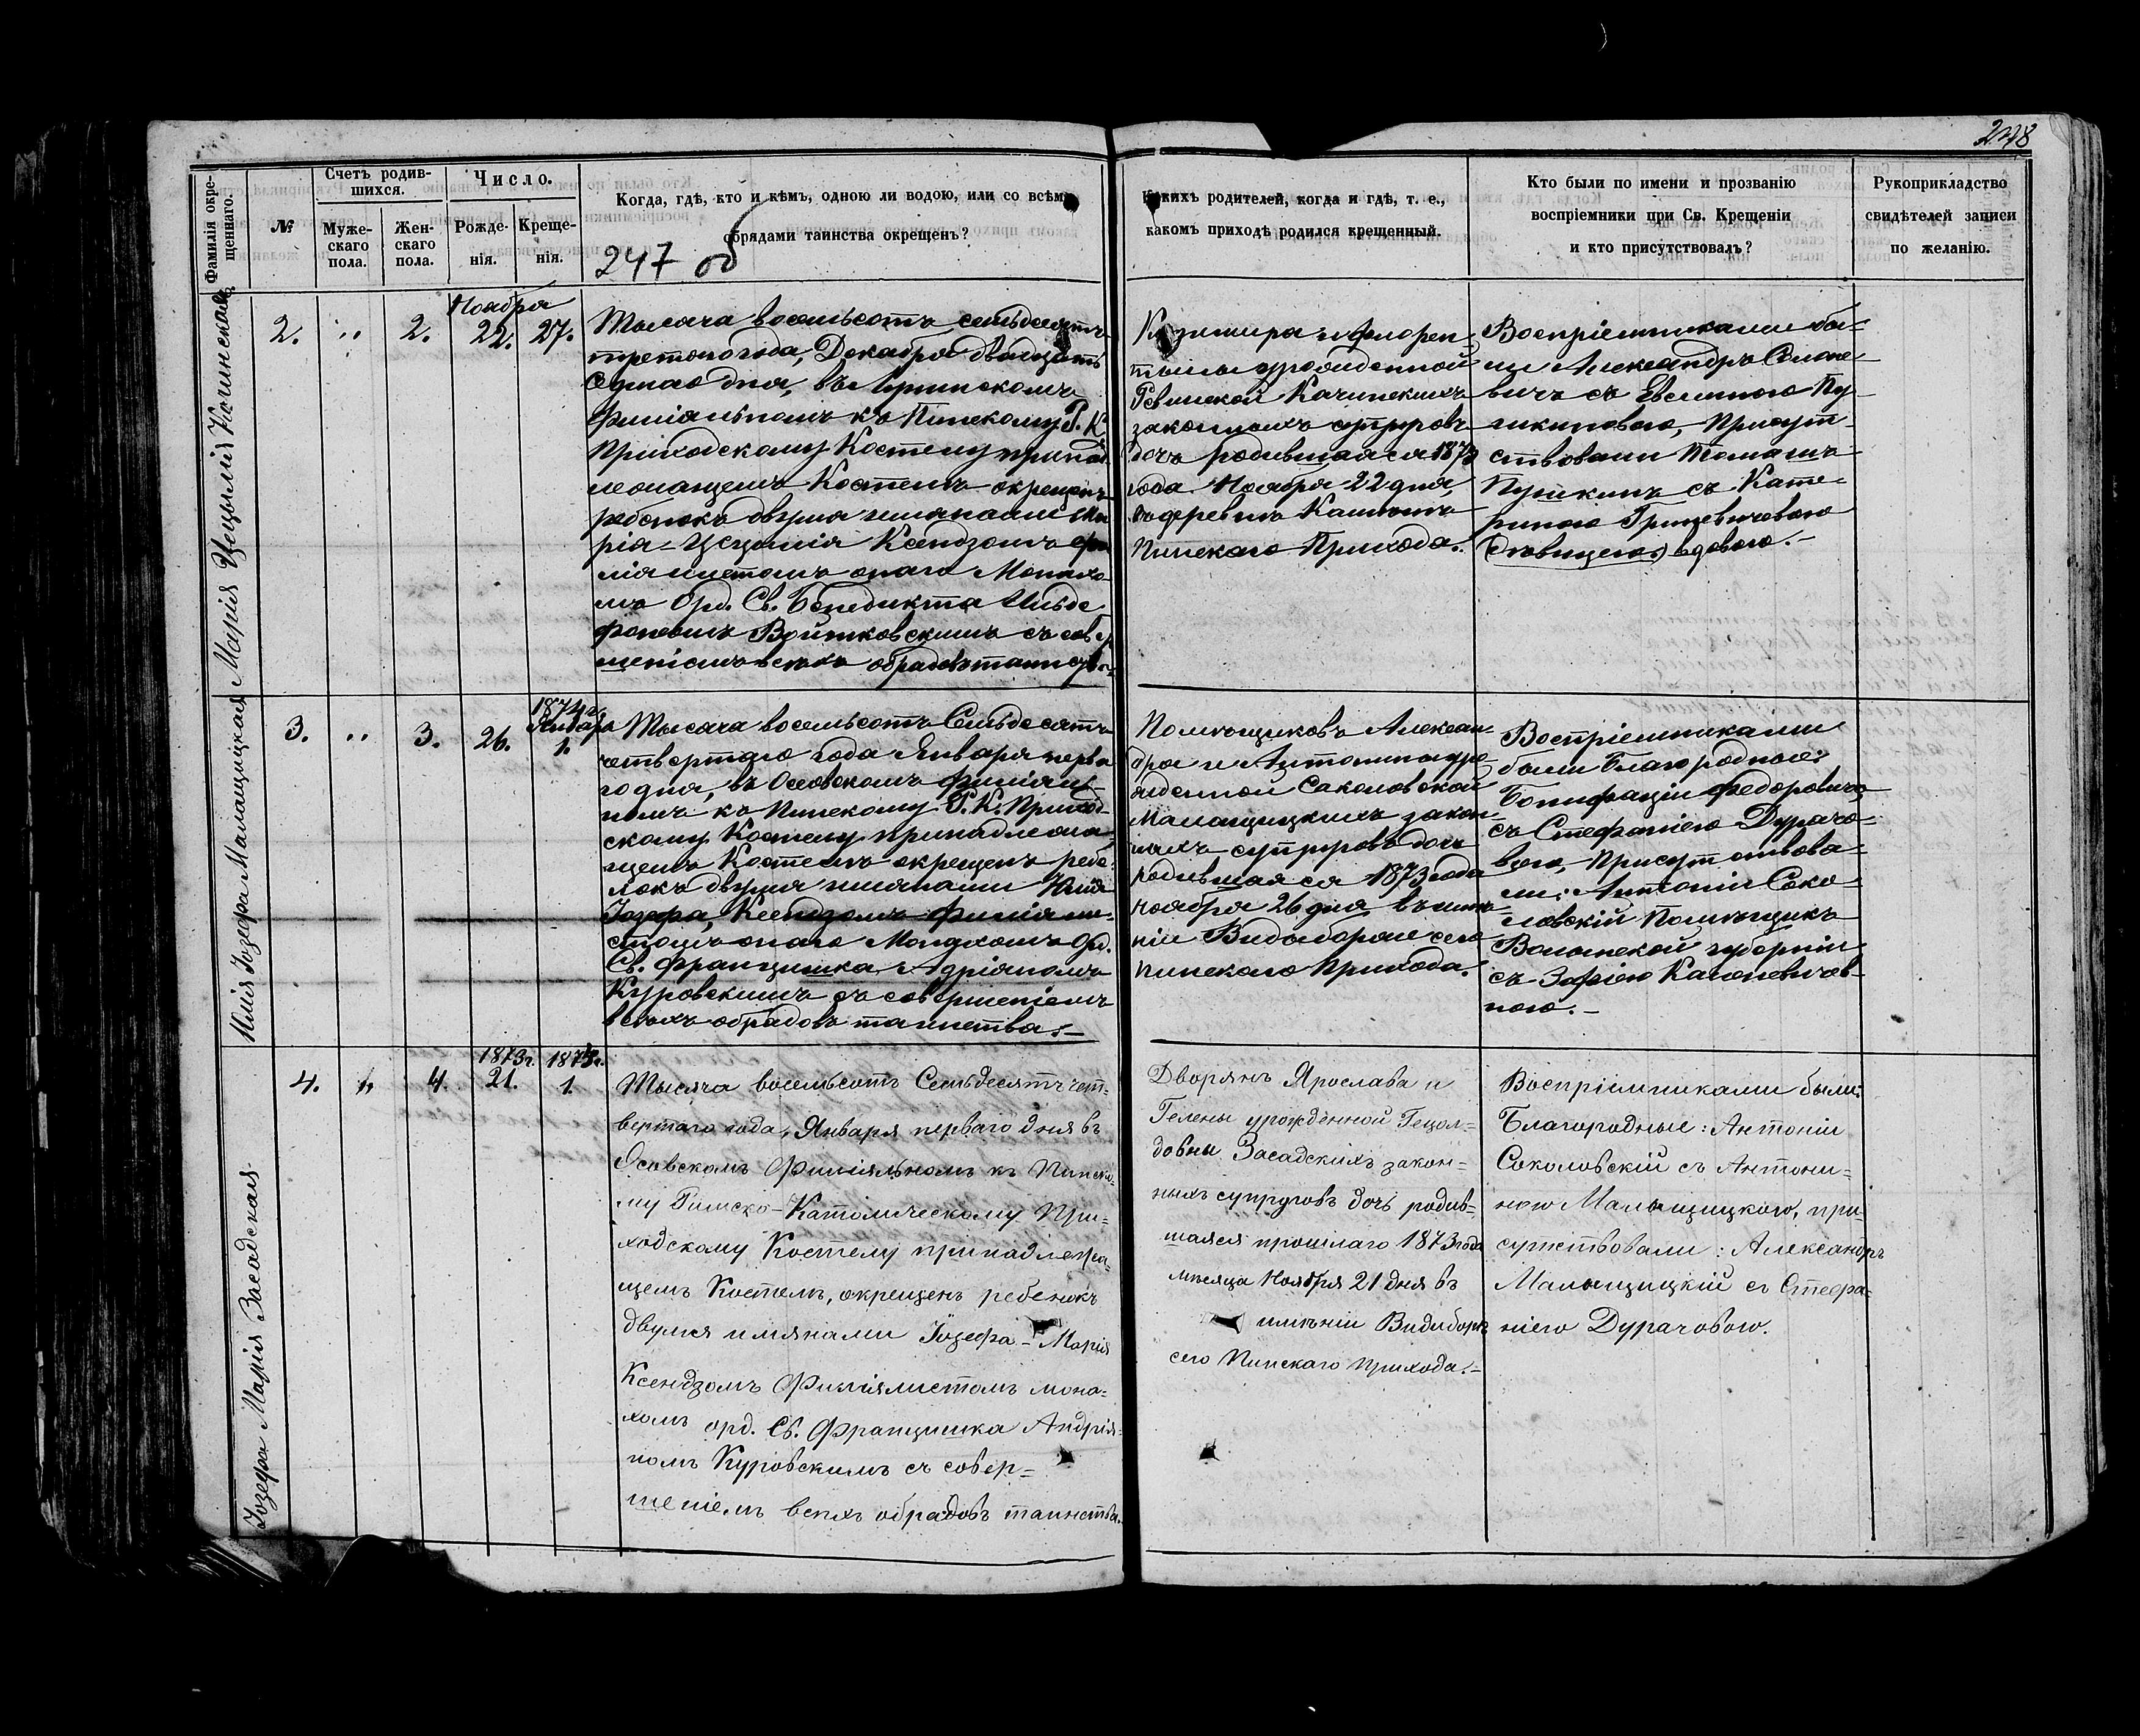 248
Фамилія окре-
щеннаго.
№
Счетъ родив-
шихся.
Муже-
скаго
пола.
Жен-
скаго
пола.
Число.
Рожде-
нія.
Креще-
нія.
Когда, гдѣ, кто и кѣмъ, одною ли водою, или со всѣми
обрядами таинства окрещенъ?
247 об
Какихъ родителей, когда и гдѣ, т. е.,
какомъ приходѣ родился крещенный.
Кто были по имени и прозванію
воспріемники при Св. Крещеніи
и кто присутствовалъ?
Рукоприкладство
свидѣтелей записи
по желанію.
Марія Цецылія Качинская
2.
"
2.
Ноября
22.
27.
Тысяча восемьсотъ семьдесятъ
третьяго года, Декабря двадцать
седмаго дня, въ
Филіальномъ къ Пинскому Р. К.
Приходскому Костелу принад
лежащемъ Костелѣ окрещенъ
ребенокъ двумя имянами Ма
рія-Цецилія Ксендзомъ фи
ліялистомъ онаго Монахо
мъ Орд. Св. Бенедикта Ильде
фонсомъ Войтковскимъ съ совер
шеніемъ всѣхъ обрядовъ таинства.
Казимира и Флорен-
тыны урожденной
Качинскихъ
законныхъ супруговъ
дочь родившаяся 1873
года Ноября 22 дня,
въ деревнѣ
Пинскаго Прихода.
Воспріемниками бы-
ли Александръ
вичъ съ Евелиною Пу-
шкиновою, Присут-
ствовали Томашъ
Пушкинъ съ Кате-
риною Грицевичовою
(дѣвицею) вдовою.-
Юлія Іозефа Малащицкая
3.
"
3.
26.
1874 г.
Января
1.
Тысяча восемьсотъ Семьдесятъ
четвертаго года Января перва
го дня, въ Осовскомъ Филіяль-
номъ къ Пинскому Р. К. Приход
скому Костелу принадлежа
щемъ Костелѣ окрещенъ ребе
нокъ двумя имянами Юлія
Іозефа, Ксендзомъ Филіяли-
стомъ онаго Монахомъ Орд.
Св. Францишка Адріяномъ
Куровскимъ съ совершеніемъ
всѣхъ обрядовъ таинства.-
Помѣщиковъ Алексан-
дра и Антонины уро-
жденной Соколовской
Малащицкихъ закон-
ныхъ супруговъ дочь
родившаяся 1873 года
Ноября 26 дня въ имѣ-
ніи Видиборже сего
Пинскаго Прихода.
Воспріемниками
были Благородные:
Бонифацій Федоровичъ
съ Стефаніею Дурачо-
вою, Присутствова-
ли: Антоній Соко-
ловскій Помѣщикъ
Волынской губерніи
съ Зофіею
ною.-
Іозефа Марія Засадская
4.
"
4.
1873 г.
21.
1874 г.
1.
Тысяча восемьсотъ Семьдесятъ чет-
вертаго года, Января перваго дня въ
Осовскомъ Филіяльномъ къ Пинско-
му Римско-Католическому При-
ходскому Костелу принадлежа-
щемъ Костелѣ, окрещенъ ребенокъ
двумя имянами Іозефа-Марія
Ксендзомъ Филіялистомъ мона-
хомъ орд. Св. Францишка Андрія-
номъ Куровскимъ съ совер-
шеніемъ всѣхъ обрядовъ таинства.
Дворянъ Ярослава и
Гелены урожденной Гецол-
довны Засадскихъ закон-
ныхъ супруговъ дочь родив-
шаяся прошлаго 1873 года
мѣсяца Ноября 21 дня въ
имѣніи Видиборъ
сего Пинскаго прихода.-
Воспріемниками были:
Благородные: Антоній
Соколовскій съ Антони-
ною Малыщицкою, при-
сутствовали: Александръ
Малыщицкій съ Стефа-
ніею Дурачовою.